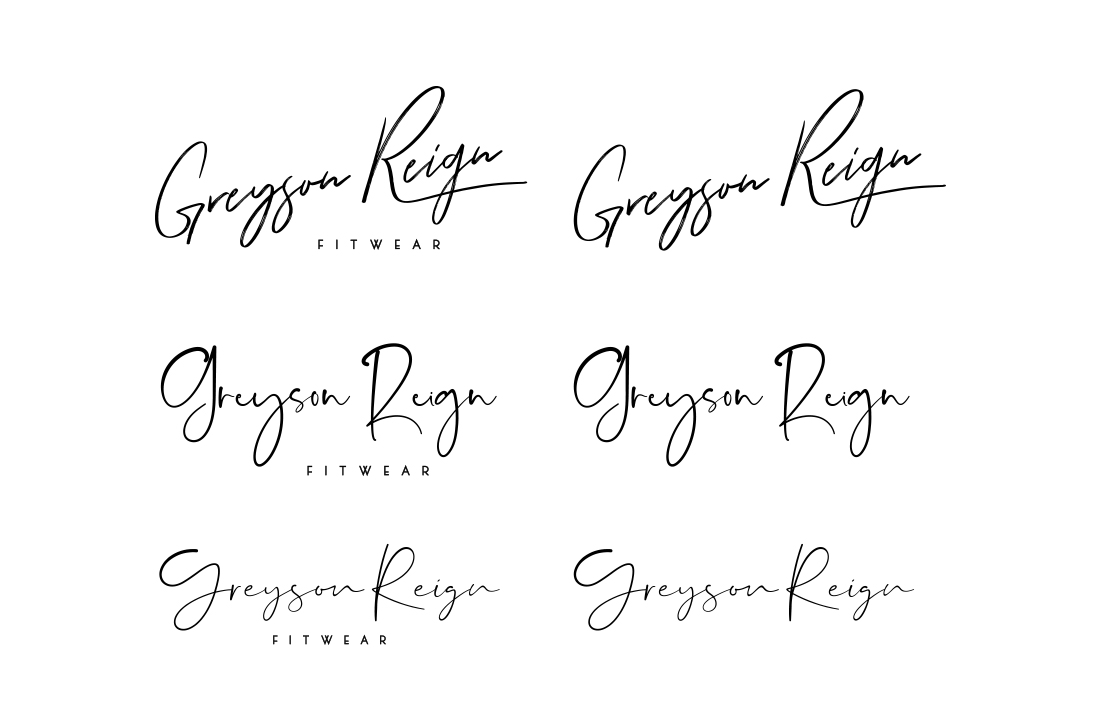 Greyson Reign Greyson Reign
FITWEAR
Greyson Reign Greyson Reign
FITWEAR
Greyson Reign Greyson Reign
FITWEAR